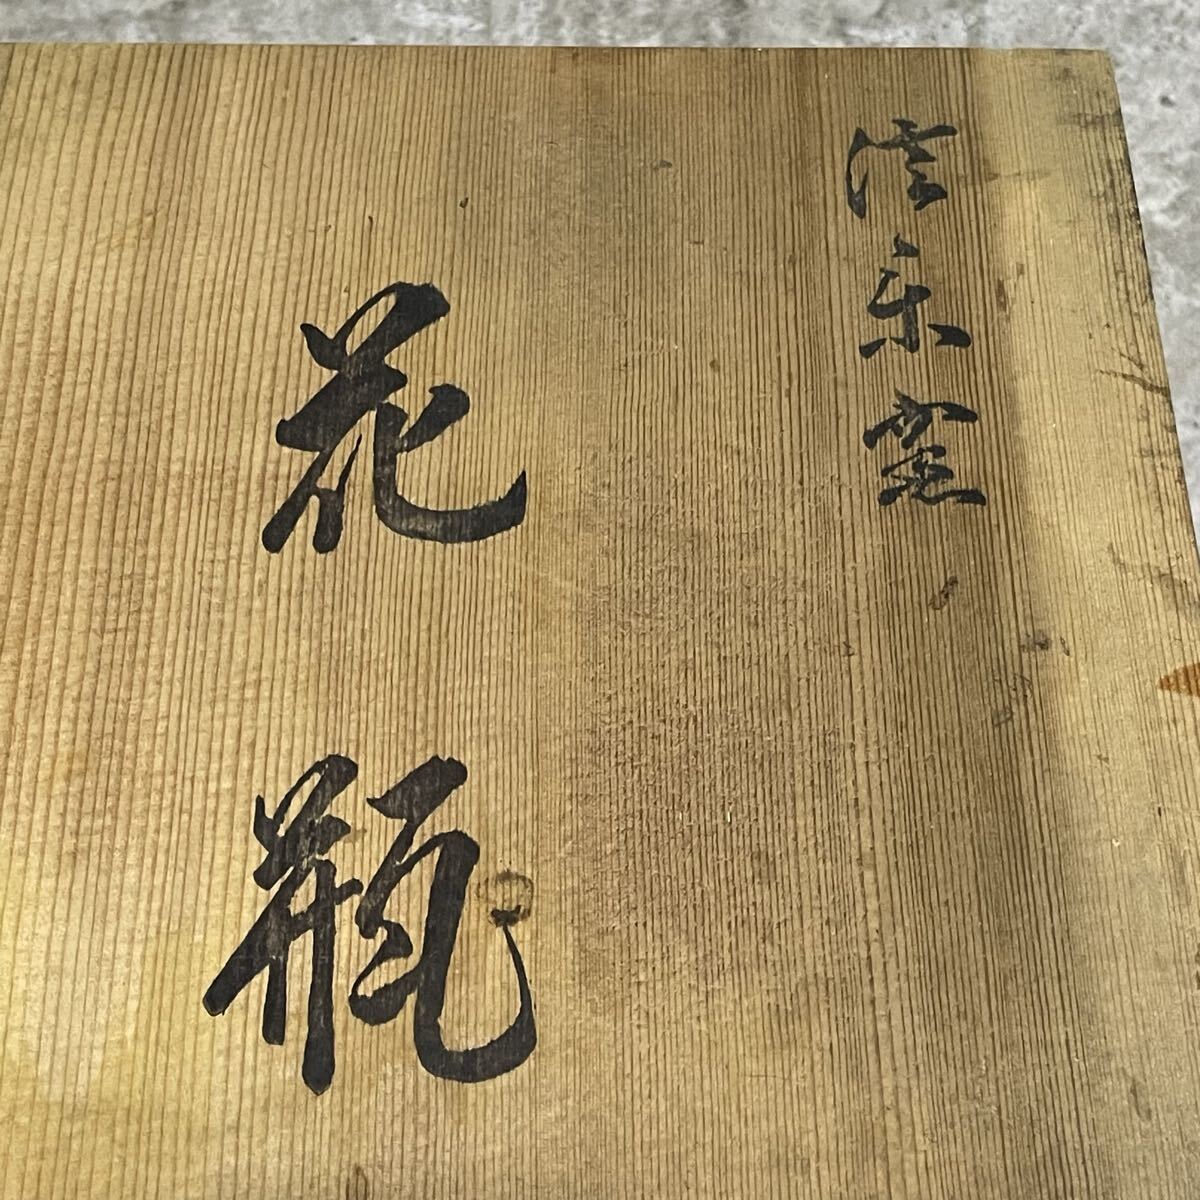 信楽窯
花瓶